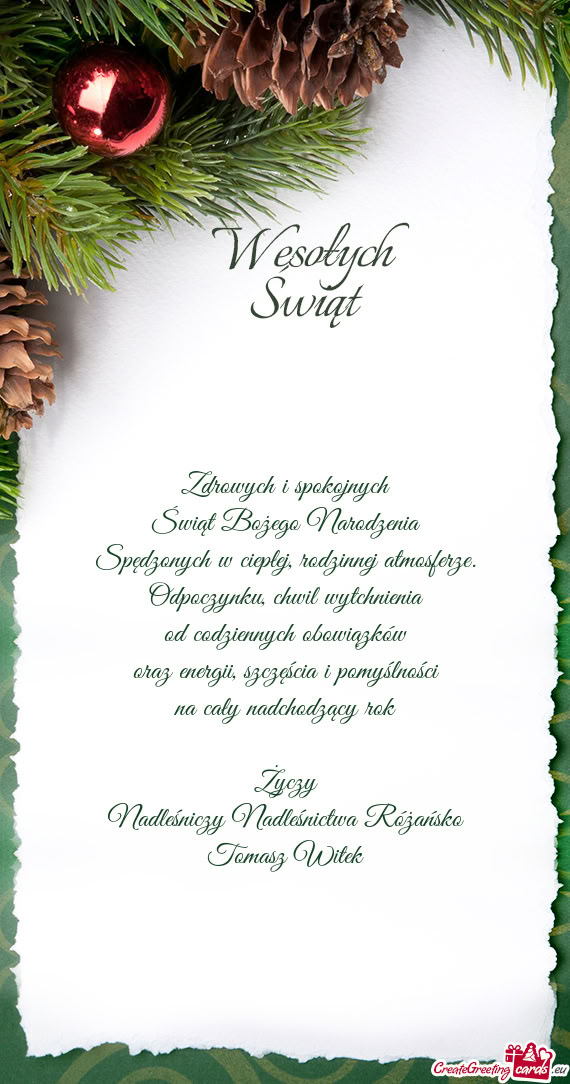 Wesołych
Świąt
Zdrowych i spokojnych
Świąt Bożego Narodzenia
Spędzonych w ciepłej, rodzinnej atmosferze.
Odpoczynku, chwil wytchnienia
od codziennych obowiązków
oraz energii, szczęścia i pomyślności
na cały nadchodzący rok
Życzy
Nadleśniczy Nadleśnictwa Różańsko
Tomasz Witek
CreateGreeting cards .eu